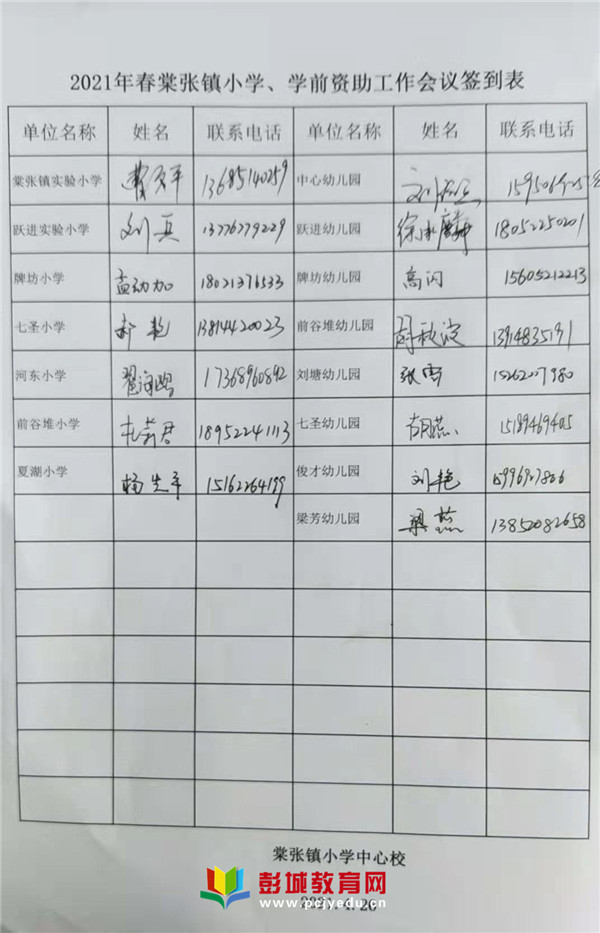 2021年春棠张镇小学、学前资助工作会议签到表
单位名称 姓名 联系电话 单位名称 姓名 联系电话
棠张镇实验小学 13685140259 中心幼儿园
跃进实验小学 刘兵 13776779229 跃进幼儿园 18052250201
牌坊小学 孟幼加 18021376533 牌坊幼儿园 高闪 15605212213
七圣小学 13814420023 前谷堆幼儿园 胡秋滢 13914835191
河东小学 17368960892 刘塘幼儿园 张雷 15262207980
前谷堆小学 18952241113 七圣幼儿园 胡燕 15189469405
夏湖小学 杨先平 15162264199 俊才幼儿园 刘艳 15996907866
梁芳幼儿园 梁燕 13852082658
棠张镇小学中心校
彭城教育网
www.pcjyedu.cn